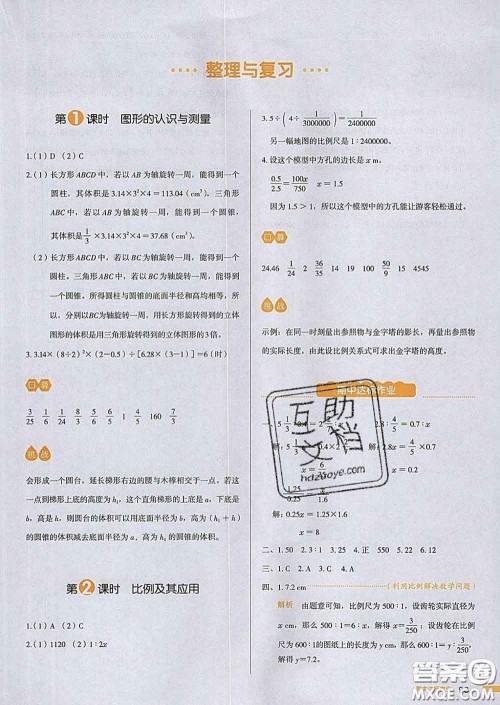 整理与复习
第1课时 图形的认识与测量
1.(1) D (2) C
2.(1) 长方形ABCD中，若以AB为轴旋转一周，能得到一个
圆柱，其体积是3.14×3²×4=113.04(cm³)。三角形
ABC中，若以AB为轴旋转一周，能得到一个圆锥，
其体积是1/3×3.14×3²×4=37.68(cm³)。
(2) 长方形ABCD中，若以BC为轴旋转一周，能得到一个
圆柱。三角形ABC中，若以BC为轴旋转一周，能得到
一个圆锥。所得圆柱与圆锥的底面半径和高均相等，所
以，分别以BC为轴旋转一周，用长方形旋转得到的立体
图形的体积是用三角形旋转得到的立体图形的3倍。
3.3.14×(8÷2)²×(2−0.5)÷[6.28×(3−1)]=6(时)
口算
3/25 1/6 1/3 1/4 1 1/8 160 7/3
挑战
会形成一个圆台，延长梯形右边的腰与木棒相交于一点，若这
一点到梯形上底的高度为h₁，这个直角梯形的上底为a，下底
为b，高是h，则圆台的体积可以用底面半径为b，高为(h₁+h)
的圆锥体积减去底面半径为a，高为h₁的圆锥体积。
第2课时 比例及其应用
1.(1) A (2) C
2.(1) 1120 (2) 1∶2x
3.5÷(4÷1/3000000)=1/2400000
另一幅地图的比例尺是1∶2400000。
4.设这个模型中方孔的边长是x m。
0.5/2.5=100x/750 x=1.5
因为1.5>1，所以这个模型中的方孔能让游客轻松通过。
口算
24.46 1/24 2 35 14 19 100 50/9 15 4545
挑战
示例：在同一时刻量出参照物与金字塔的影长，再量出参照物
的实际长度，由此设比例关系式可求出金字塔的高度。
期中达标作业
互助文档
hdzuoye.com
x=0.2
1.25/0.25=x/1.6
解：0.25x=1.25×1.6
x=8
二、1.50 2.35 3.5 4.正 550 5.22 6.12
三、1.C 2.A 3.C 4.A
四、1.7.2 cm（利用比例解决数学问题）
解析 由题意可知，比例尺为500∶1，设齿轮实际直径为
x cm，则6∶x=500∶1，解得x=3/250；设齿轮在比例
尺为600∶1的图纸上的长度为y cm，那么y∶3/250=600∶1，
解得y=7.2。
答案圈
MXQE.COM